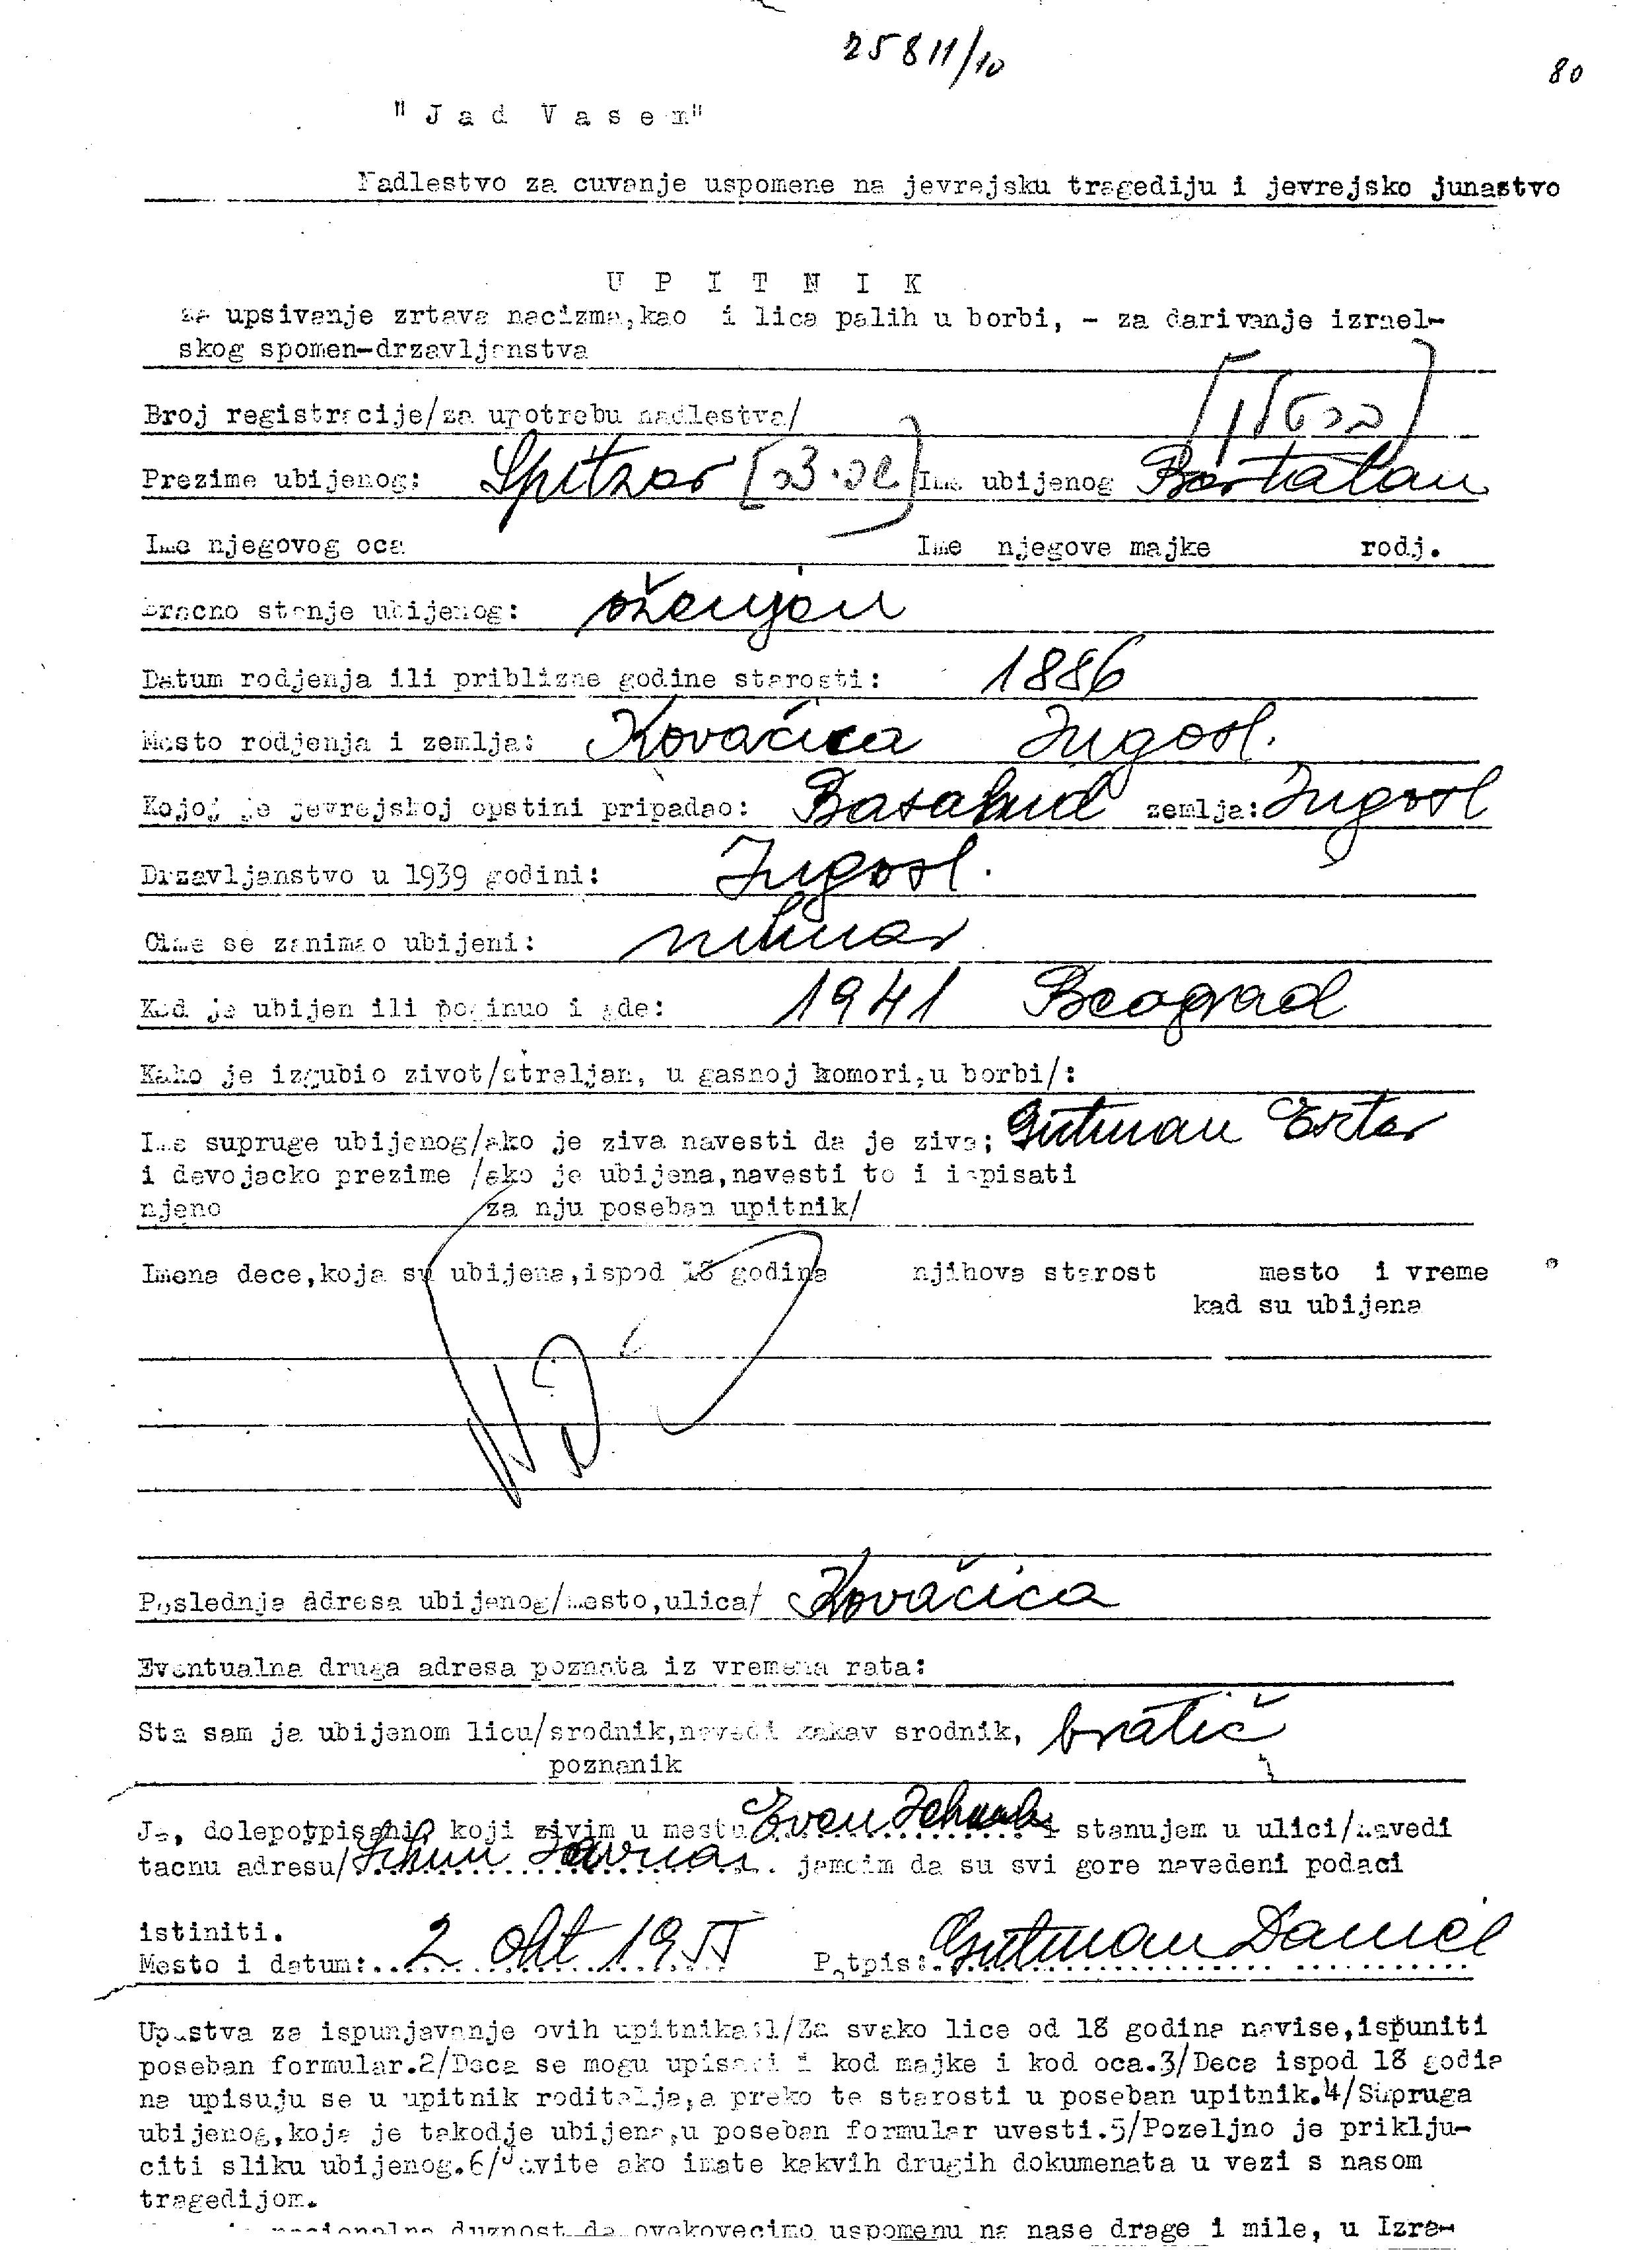 25811/10
80
"Jad Vasem"
Nadlestvo za cuvanje uspomene na jevrejsku tragediju i jevrejsko junastvo
UPITNIK
za upsivanje zrtava nacizma,kao i lica palih u borbi, - za darivanje izrael-
skog spomen-drzavljanstva
Broj registracije/za upotrebu nadlestva/
Prezime ubijenog: Spitzer Ime ubijenog Bertalan
Ime njegovog oca Ime njegove majke rodj.
Bracno stanje ubijenog: oženjen
Datum rodjenja ili priblizne godine starosti: 1886
Mesto rodjenja i zemlja: Kovačica Jugosl.
Kojoj je jevrejskoj opstini pripadao: zemlja: Jugosl
Drzavljanstvo u 1939 godini: Jugosl.
Cime se zanimao ubijeni:
Kad je ubijen ili poginuo i gde: 1941 Beograd
Kako je izgubio zivot/streljan, u gasnoj komori,u borbi/:
Ime supruge ubijenog/ako je ziva navesti da je ziva; Gutman Ester
i devojacko prezime /ako je ubijena,navesti to i ispisati
njeno za nju poseban upitnik/
Imena dece,koja su ubijena,ispod 18 godina njihova starost mesto i vreme
kad su ubijena
Poslednja adresa ubijenog/mesto,ulica/ Kovačica
Eventualna druga adresa poznata iz vremena rata:
Sta sam ja ubijenom licu/srodnik,navedi kakav srodnik, bratić
poznanik
Ja, dolepotpisani, koji zivim u mestu Even Jehuda i stanujem u ulici/navedi
tacnu adresu/ jamcim da su svi gore navedeni podaci
istiniti.
Mesto i datum: 2 okt 1955 Potpis: Gutman Daniel
Upustva za ispunjavanje ovih upitnika:1/Za svako lice od 18 godina navise,ispuniti
poseban formular.2/Deca se mogu upisati i kod majke i kod oca.3/Deca ispod 18 godia
na upisuju se u upitnik roditelja,a preko te starosti u poseban upitnik.4/Supruga
ubijenog,koja je takodje ubijena,u poseban formular uvesti.5/Pozeljno je priklju-
citi sliku ubijenog.6/Javite ako imate kakvih drugih dokumenata u vezi s nasom
tragedijom.
nacionalna duznost da ovekovecimo uspomenu na nase drage i mile, u Izra-